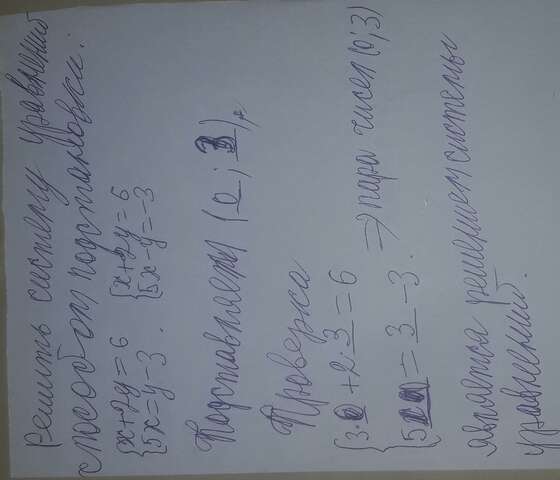 Решить систему уравнений
способом подстановки.
{x+2y=6 {x+2y=6
{5x=y-3. {5x-y=-3
Подставляем (0; 3),
Проверка
{3·0+2·3=6
{5 = 3-3. ⇒ пара чисел (0; 3)
является решением системы
уравнений.